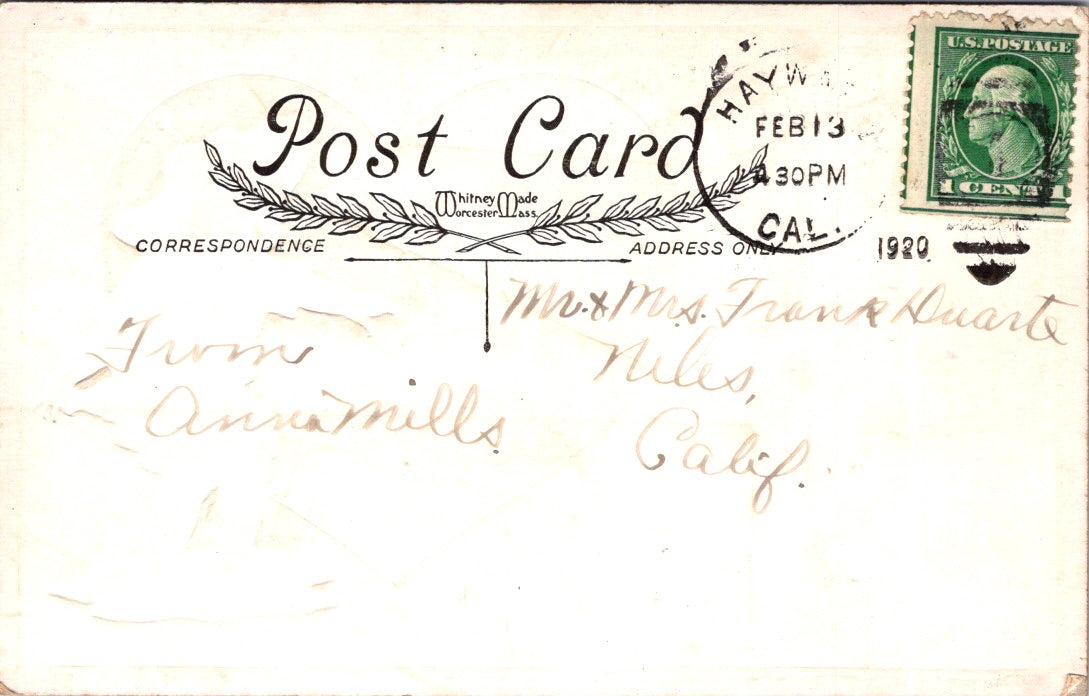 Post Card
Whitney Made
Worcester Mass.
CORRESPONDENCE
ADDRESS ONLY
HAYW
FEB 13
4 30 PM
CAL.
1920
U.S. POSTAGE
1 CENT 1
Mr. & Mrs. Frank Duarte
Niles,
Calif.
From
Anna Mills